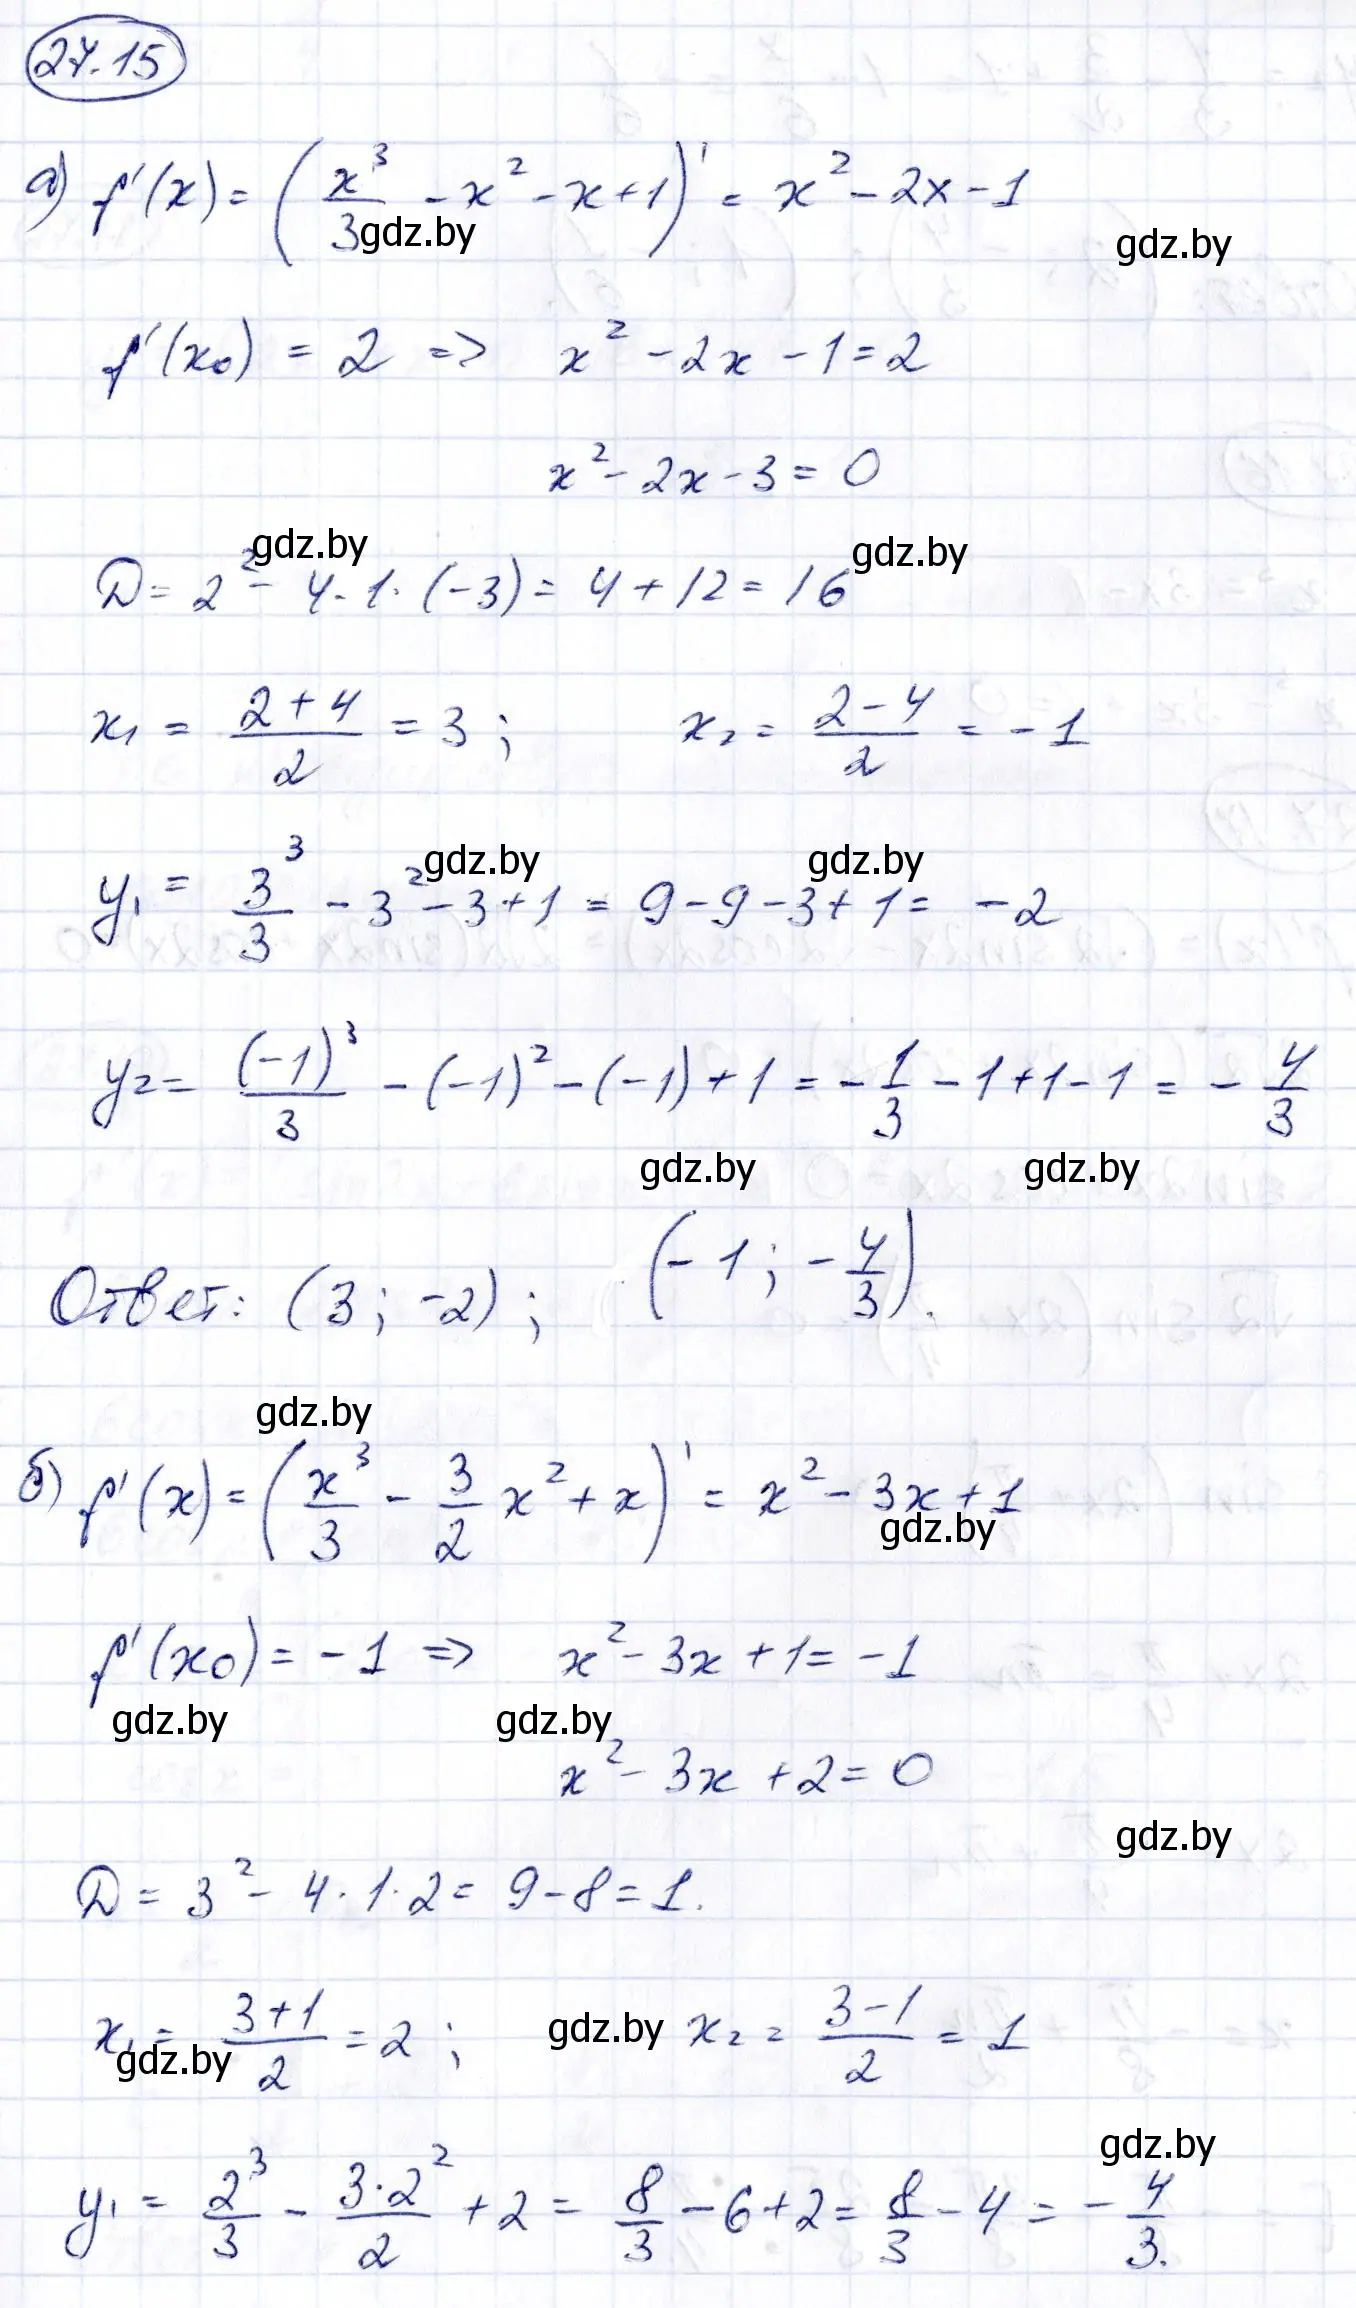 27.15
а) f'(x) = (x³/3 - x² - x + 1)' = x² - 2x - 1
gdz.by gdz.by
f'(x₀) = 2 => x² - 2x - 1 = 2
x² - 2x - 3 = 0
gdz.by gdz.by
D = 2² - 4·1·(-3) = 4 + 12 = 16
x₁ = (2+4)/2 = 3; x₂ = (2-4)/2 = -1
gdz.by gdz.by
y₁ = 3³/3 - 3² - 3 + 1 = 9 - 9 - 3 + 1 = -2
y₂ = (-1)³/3 - (-1)² - (-1) + 1 = -1/3 - 1 + 1 - 1 = -4/3
gdz.by gdz.by
Ответ: (3; -2); (-1; -4/3).
gdz.by
б) f'(x) = (x³/3 - 3/2 x² + x)' = x² - 3x + 1
gdz.by
f'(x₀) = -1 => x² - 3x + 1 = -1
gdz.by gdz.by
x² - 3x + 2 = 0
gdz.by
D = 3² - 4·1·2 = 9 - 8 = 1.
x₁ = (3+1)/2 = 2; gdz.by x₂ = (3-1)/2 = 1
gdz.by
gdz.by
y₁ = 2³/3 - 3·2²/2 + 2 = 8/3 - 6 + 2 = 8/3 - 4 = -4/3.